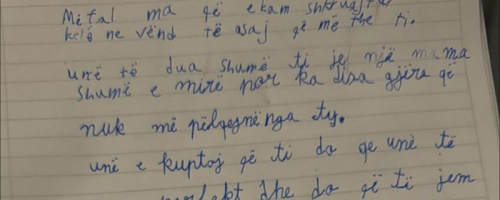 Më fal ma që e kam shkruajtur
ketë ne vënd të asaj që më the ti.
unë të dua shumë ti je një mama
shumë e mirë por ka disa gjëra që
nuk më pëlqejnë nga ty.
unë e kuptoj që ti do qe unë të
dhe do që të jem